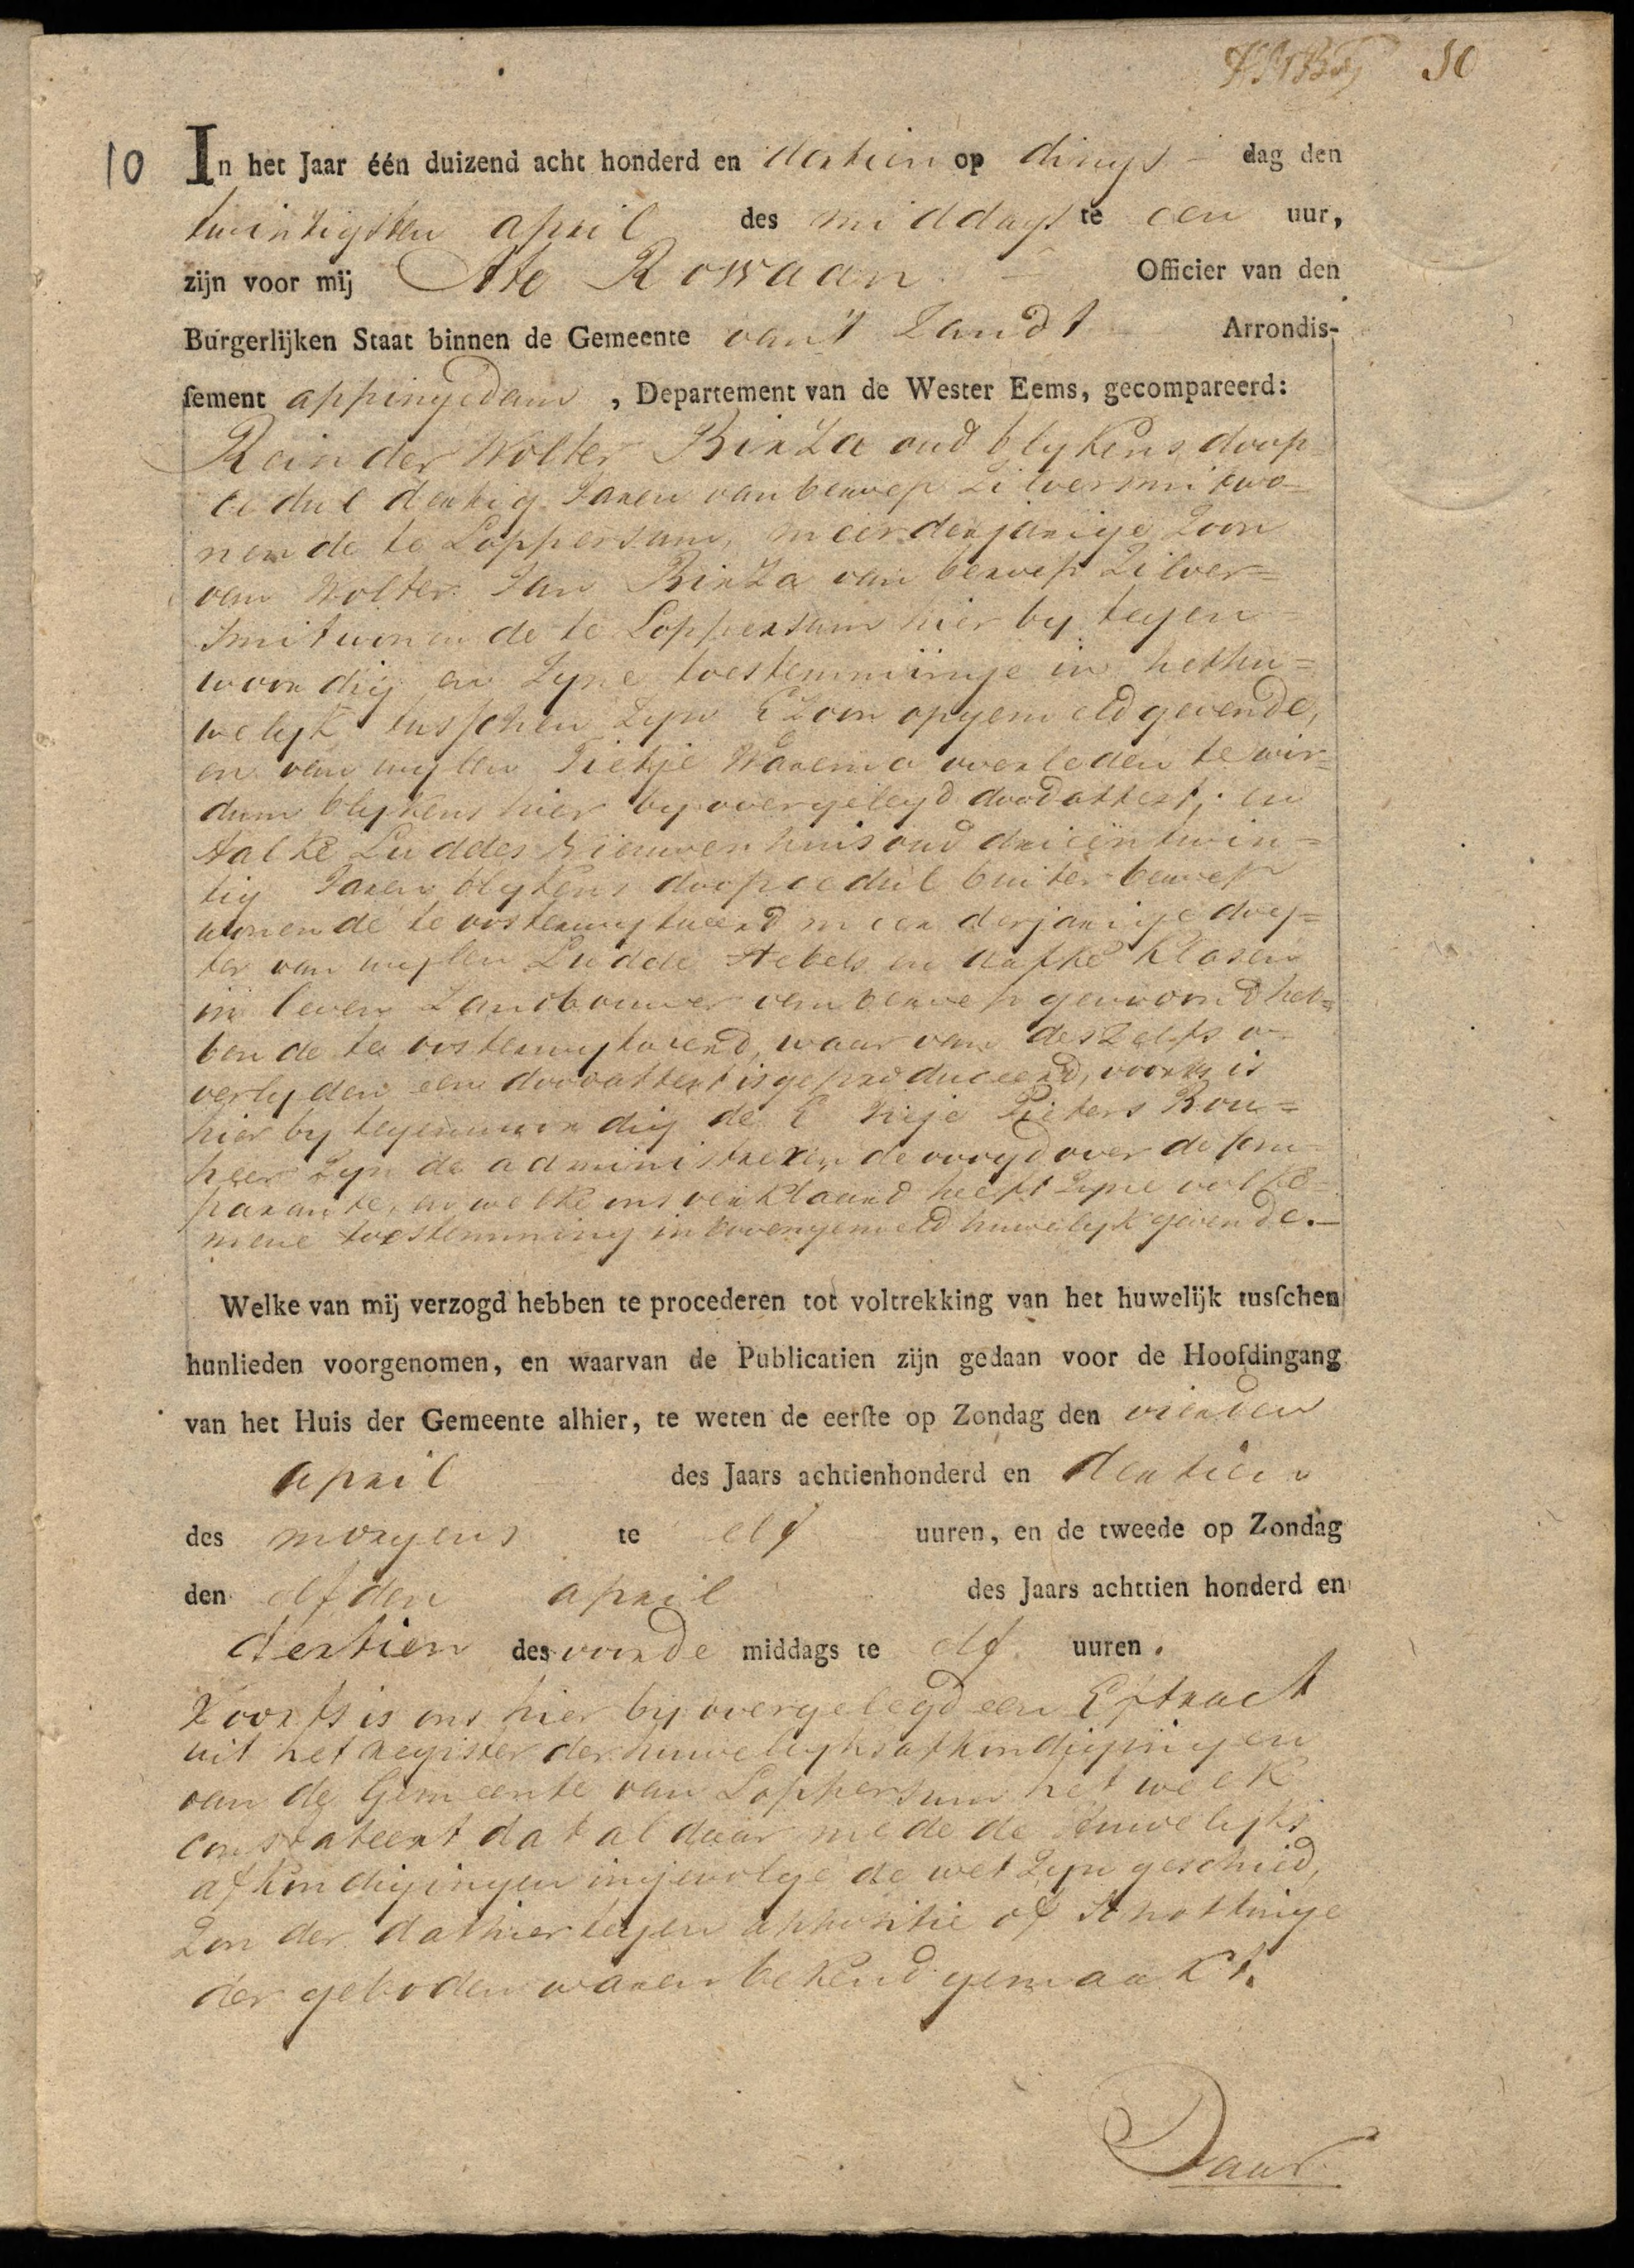 10
10
In het Jaar één duizend acht honderd en dertien op dings dag den
twintigsten april des middags te een uur,
zijn voor mij Ate Rowaan Officier van den
Burgerlijken Staat binnen de Gemeente van 't Zandt Arrondis-
sement appingedam, Departement van de Wester Eems, gecompareerd:
Reinder Wolter Birza oud blykens doop
cedul dertig Jaren van beroep Zilversmit wo-
nende te Loppersum, meerderjarige Zoon
van Wolter Jan Birza van beroep Zilver=
smit wonende te Loppersum hier by tegen
woordig en Zyne toestemminge in het hu=
welyk tusschen Zyn E Zoon opgemeld gevende,
en van wylen Tietje Warema overleden te wir=
dum blykens hier by overgelegd doodattest; en
Aalke Luddes Nieuwenhuis oud drieëntwin=
tig Jaren blykens doopcedul buiten beroep
wonende te oosternytwerd meerderjarige dog=
ter van wylen Ludde Aebels en Aafke Klasen
in leven Landbouwer van beroep gewoond heb=
bende te oosternytwerd, waar van deszelfs o-
verlyden een doodattest is geproduceerd, voorts is
hier by tegenwoordig de E Pieters Bou=
heer Zyn de administrerende voogd over de Com
parante, en welke ons verklaard heeft Zyne volko-
mene toestemming in bovengemeld huwelyk gevende.-
Welke van mij verzogd hebben te procederen tot voltrekking van het huwelijk tusschen
hunlieden voorgenomen, en waarvan de Publicatien zijn gedaan voor de Hoofdingang
van het Huis der Gemeente alhier, te weten de eerste op Zondag den vierden
april des Jaars achtienhonderd en dertien
des morgens te elf uuren, en de tweede op Zondag
den elfden april des Jaars achttien honderd en
dertien des voorde middags te elf uuren.
Voorts is ons hier by overgelegd een Extract
uit het register der huwelyksafkondigingen
van de Gemeente van Loppersum het welk
constateert dat aldaar mede de huwelyks
afkondigingen ingevolge de wet Zyn geschied,
Zonder dat hier tegen oppositie of Schottinge
der geboden waren bekend gemaakt.
Daar